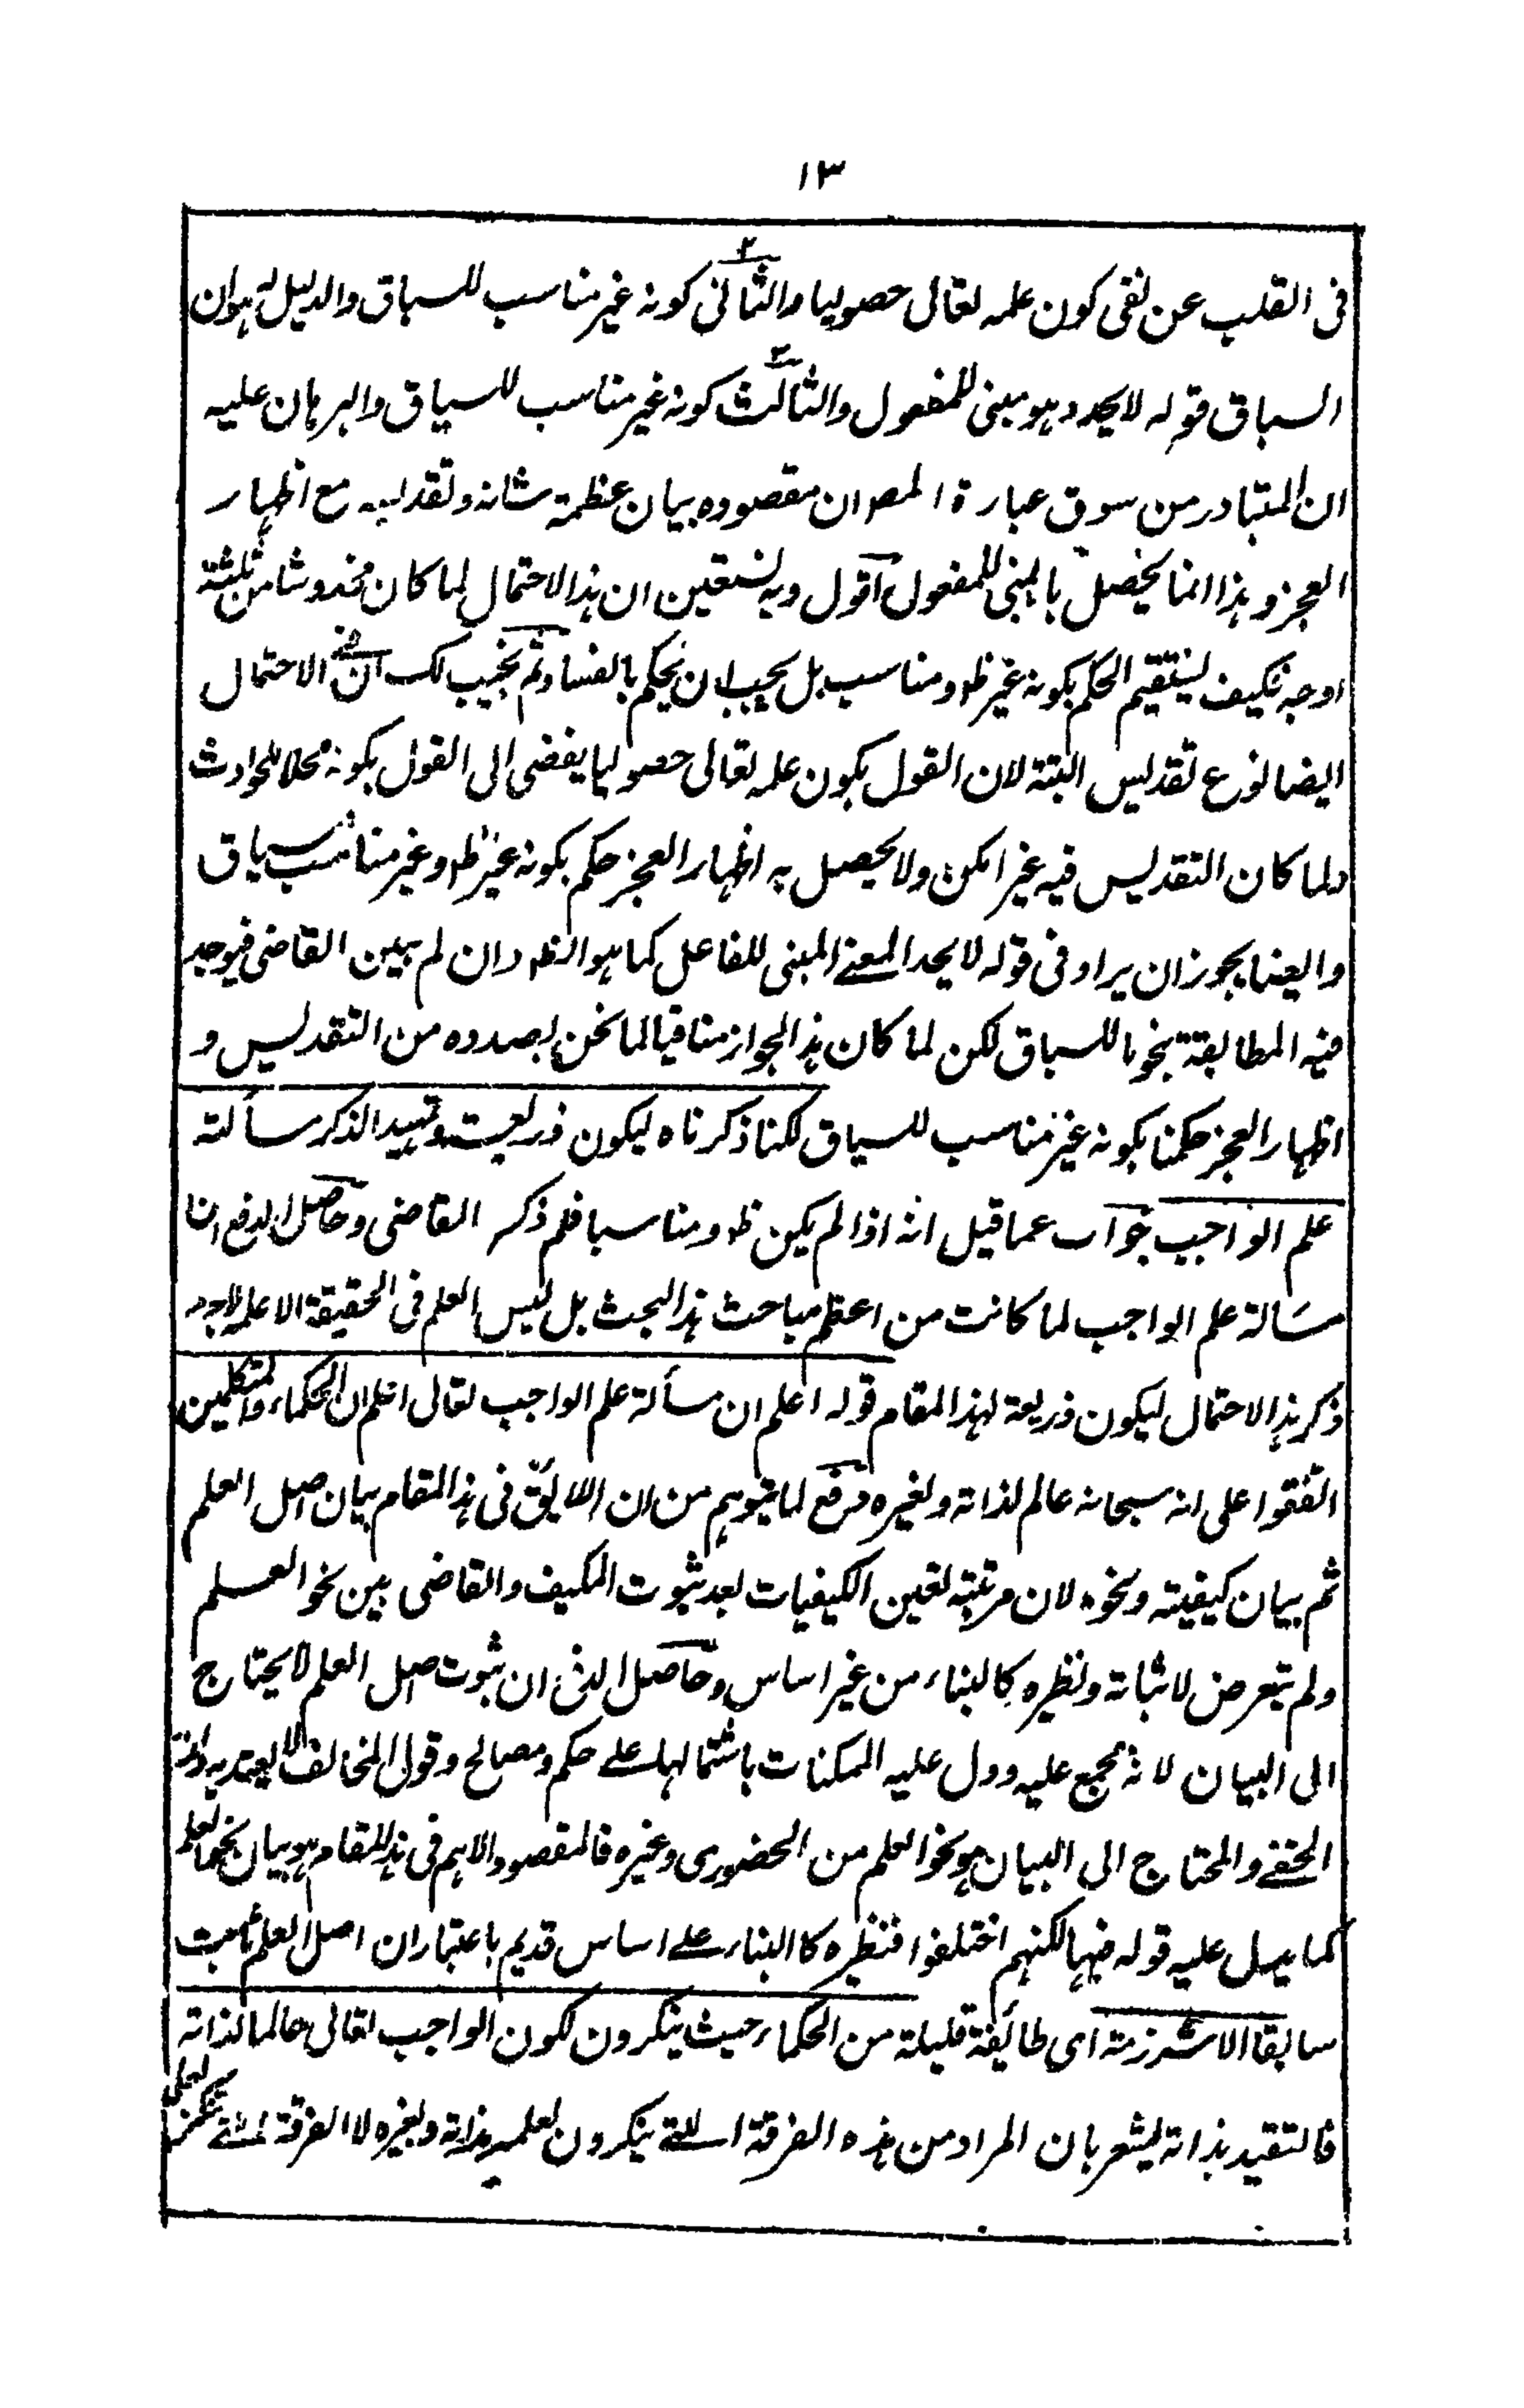 ١٣
فى القلب عن نفى كون علمه تعالى حصوليا والثانى كونه غير مناسب للسباق والدليل له هو ان
السباق قوله لا يحد وهو مبنى للمفعول والثالث كونه غير مناسب للسياق والبرهان عليه
ان المتبادر من سوق عبارة المص ان مقصوده بيان عظمة شانه وتقديسه مع اظهار
العجز وهذا انما يحصل بالمبنى للمفعول اقول وبه نستعين ان هذا الاحتمال لما كان مخدوشا من ثلثة
اوجه فكيف يستقيم الحكم بكونه غير ظ ومناسب بل يجب ان يحكم بالفساد ثم نجيب لك ان فى الاحتمال
ايضا نوع تقديس البتة لان القول بكون علمه تعالى حصوليا يفضى الى القول بكونه محلا للحوادث
ولما كان التقديس فيه غير امكن ولا يحصل به اظهار العجز حكم بكونه غير ظ وغير مناسب سياق
وايضا يجوز ان يراد فى قوله لا يحد المعنى المبنى للفاعل كما هو الظ وان لم يبين القاضى فيوجد
فيه المطابقة بنحو ما للسباق لكن لما كان هذا الجواز منافيا لما نحن بصدده من التقديس و
اظهار العجز حكمنا بكونه غير مناسب للسياق لكنا ذكرناه ليكون ذريعة وتمهيد الذكر مسألة
علم الواجب جواب عما قيل انه اذا لم يكن ظ ومناسبا فلم ذكر القاضى وحاصل الدفع انا
مسالة علم الواجب لما كانت من اعظم مباحث هذا البحث بل ليس العلم فى الحقيقة الا علم الواجب
ذكر هذا الاحتمال ليكون ذريعة لهذا المقام قوله اعلم ان مسألة علم الواجب تعالى اعلم ان الحكماء والمتكلمين
اتفقوا على انه سبحانه عالم لذاته ولغيره دفع لما يتوهم من ان اللايق فى هذا المقام بيان اصل العلم
ثم بيان كيفيته ونحوه لان مرتبة تعين الكيفيات بعد ثبوت المكيف والقاضى بين نحو العلم
ولم يتعرض لاثباته ونظيره كالبناء من غير اساس وحاصل الدفع ان ثبوت اصل العلم لا يحتاج
الى البيان لانه مجمع عليه ودل عليه الممكنات باشتمالها على حكم ومصالح وقول المخالف لا يعتد به وانما
الخفى والمحتاج الى البيان هو نحو العلم من الحضورى وغيره فالمقصود والاهم فى هذا المقام هو بيان نحو العلم
كما يدل عليه قوله فيها لكنهم اختلفوا فنظيره كالبناء على اساس قديم باعتبار ان اصل العلم ثابت
سابقا الا شرذمة اى طائفة قليلة من الحكماء حيث ينكرون لكون الواجب تعالى عالما لذاته
فالتقيد بذاته يشعر بان المراد من هذه الفرقة اللتى ينكرون لعلمه بذاته ولغيره لا الفرقة التى تنكر